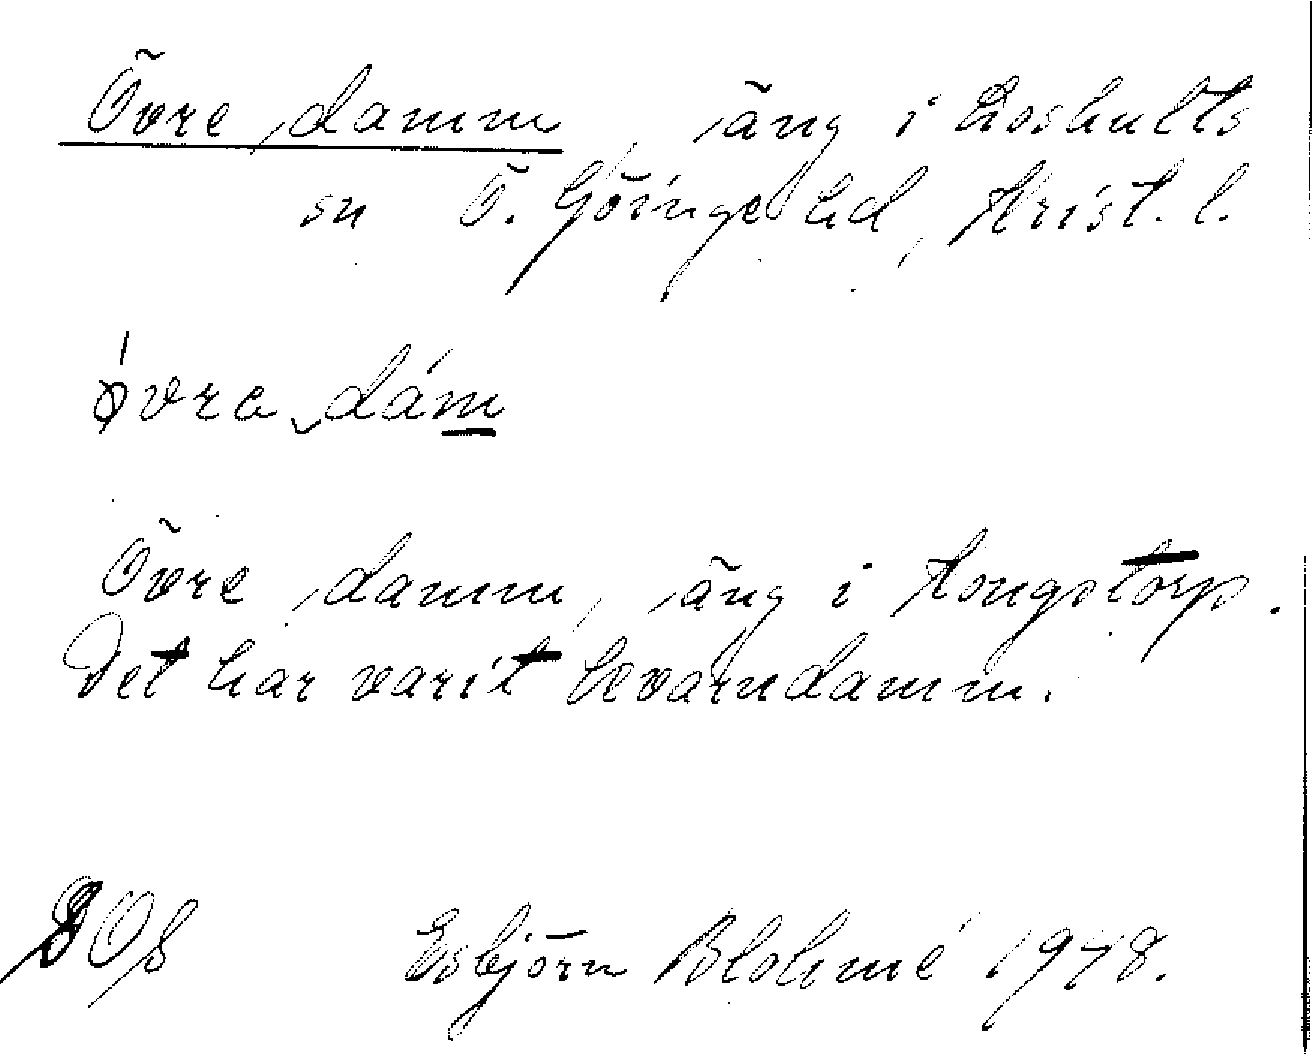 Övre damm, äng i Loshults
sn Ö. Göinge hd, Krist. l.
övra dám
Övre damm, äng i Kongstorp.
Det har varit kvarndamm.
SOS Esbjörn Blohmé 1948.